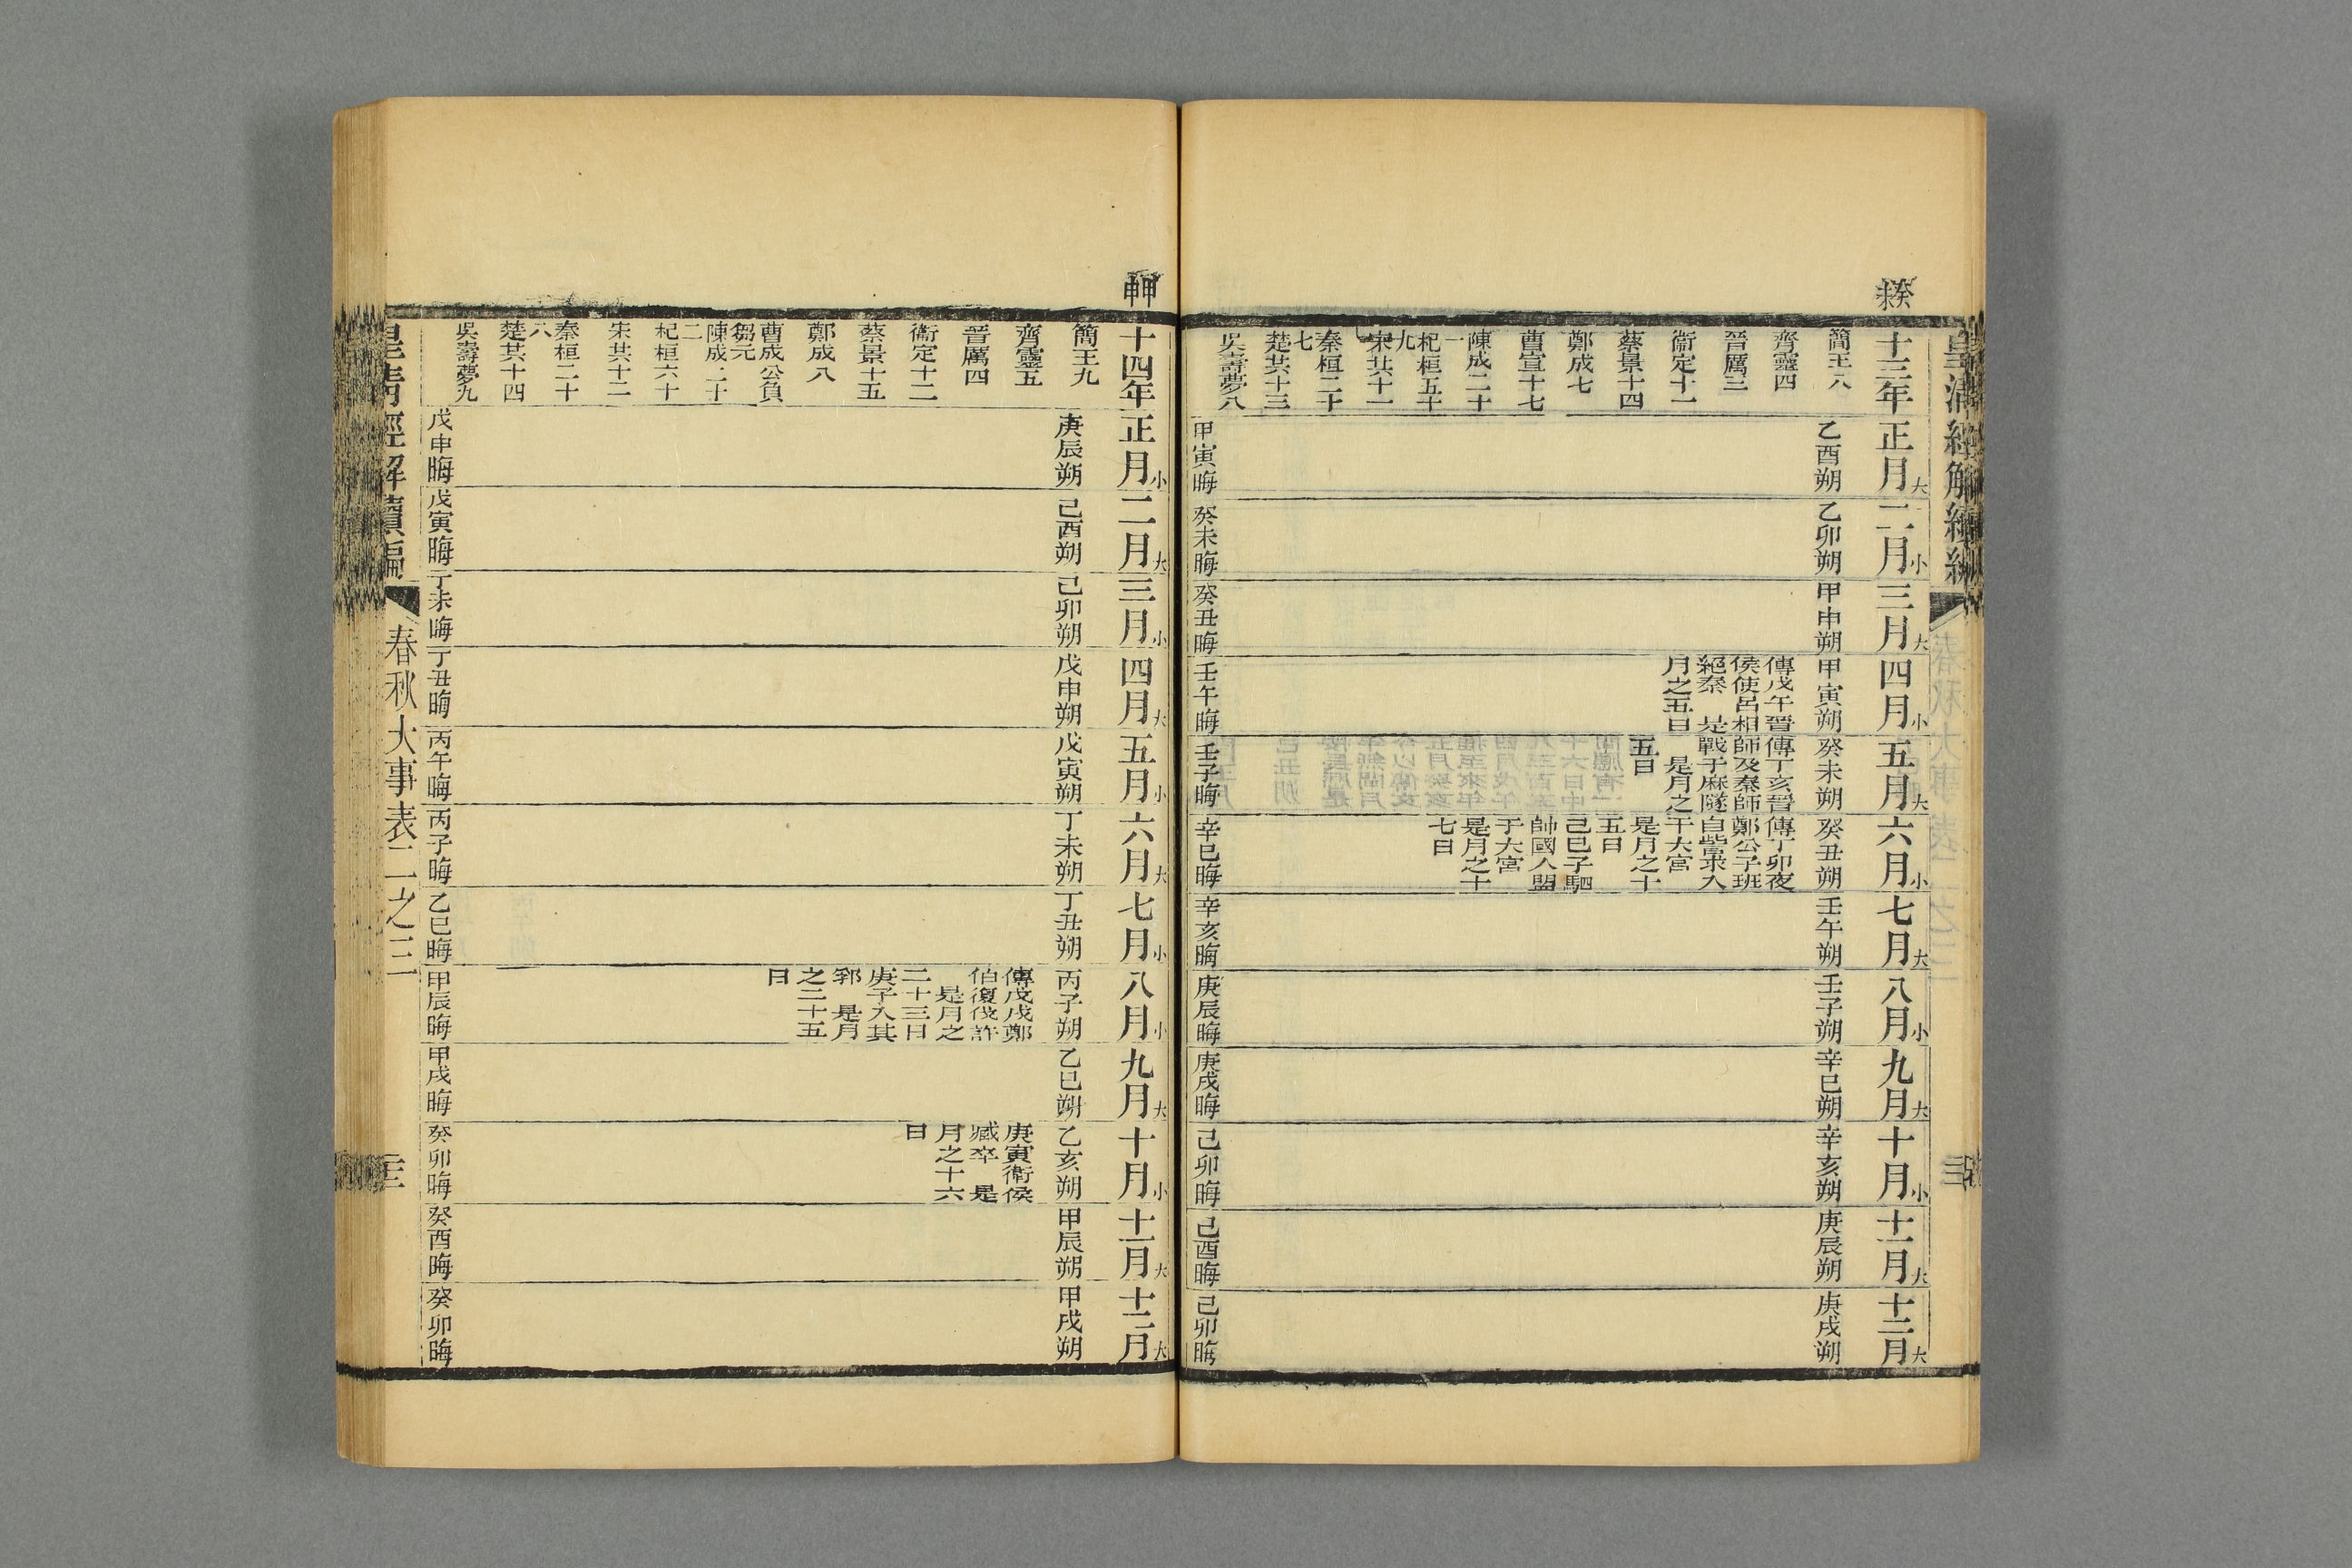 皇清經解續編
癸未
十三年
正月大
二月小
三月大
四月小
五月大
六月小
七月大
八月小
九月大
十月小
十一月大
十二月大
簡王八
齊靈四
晉厲三
衞定十一
蔡景十四
鄭成七
曹宣十七
陳成二十
一
杞桓五十
九
宋共十一
秦桓二十
七
楚共十三
吳壽夢八
乙酉朔
乙卯朔
甲申朔
甲寅朔
癸未朔
癸丑朔
壬午朔
壬子朔
辛巳朔
辛亥朔
庚辰朔
庚戌朔
傳戊午晉
侯使呂相
絕秦 是
月之五日
傳丁亥晉
師及秦師
戰于麻隧
是月之
五日
傳丁卯夜
鄭公子班
自訾求入
于大宮
是月之十
五日
己巳子駟
帥國人盟
于大宮
是月之十
七日
甲寅晦
癸未晦
癸丑晦
壬午晦
壬子晦
辛巳晦
辛亥晦
庚辰晦
庚戌晦
己卯晦
己酉晦
己卯晦
甲申
十四年
正月小
二月大
三月小
四月大
五月小
六月大
七月小
八月小
九月大
十月小
十一月大
十二月大
簡王九
齊靈五
晉厲四
衞定十二
蔡景十五
鄭成八
曹成公負
芻元
陳成二十
二
杞桓六十
宋共十二
秦桓二十
八
楚共十四
吳壽夢九
庚辰朔
己酉朔
己卯朔
戊申朔
戊寅朔
丁未朔
丁丑朔
丙子朔
乙巳朔
乙亥朔
甲辰朔
甲戌朔
傳戊戌鄭
伯復伐許
是月之
二十三日
庚子入其
郛 是月
之二十五
日
庚寅衞侯
臧卒 是
月之十六
日
戊申晦
戊寅晦
丁未晦
丁丑晦
丙午晦
丙子晦
乙巳晦
甲辰晦
甲戌晦
癸卯晦
癸酉晦
癸卯晦
皇清經解續編
春秋大事表二之三
三